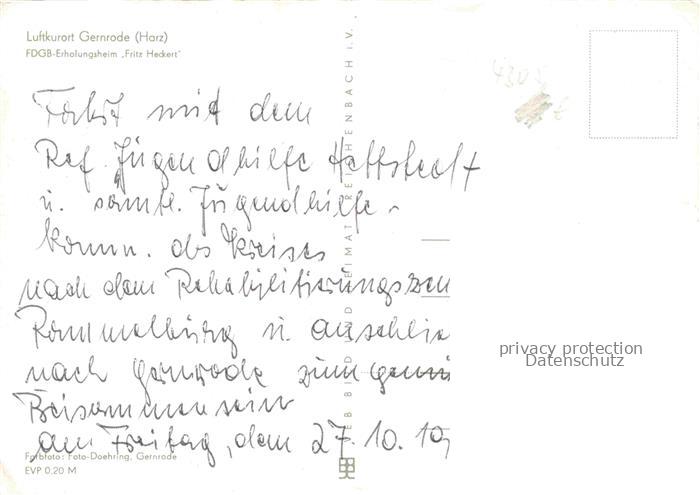 Luftkurort Gernrode (Harz)
FDGB-Erholungsheim „Fritz Heckert"
Fahrt mit dem
Ref. Jugendhilfe Hettstedt
u. sämtl. Jugendhilfe-
komm. des Kreises
nach dem Rehabilitierungszen
Rammelburg u. anschlie
nach Gernrode zum gemü
Beisammensein
am Freitag, dem 27. 10. 19
Farbfoto: Foto-Doehring, Gernrode
EVP 0,20 M
BILD UND HEIMAT REICHENBACH I. V.
privacy protection
Datenschutz